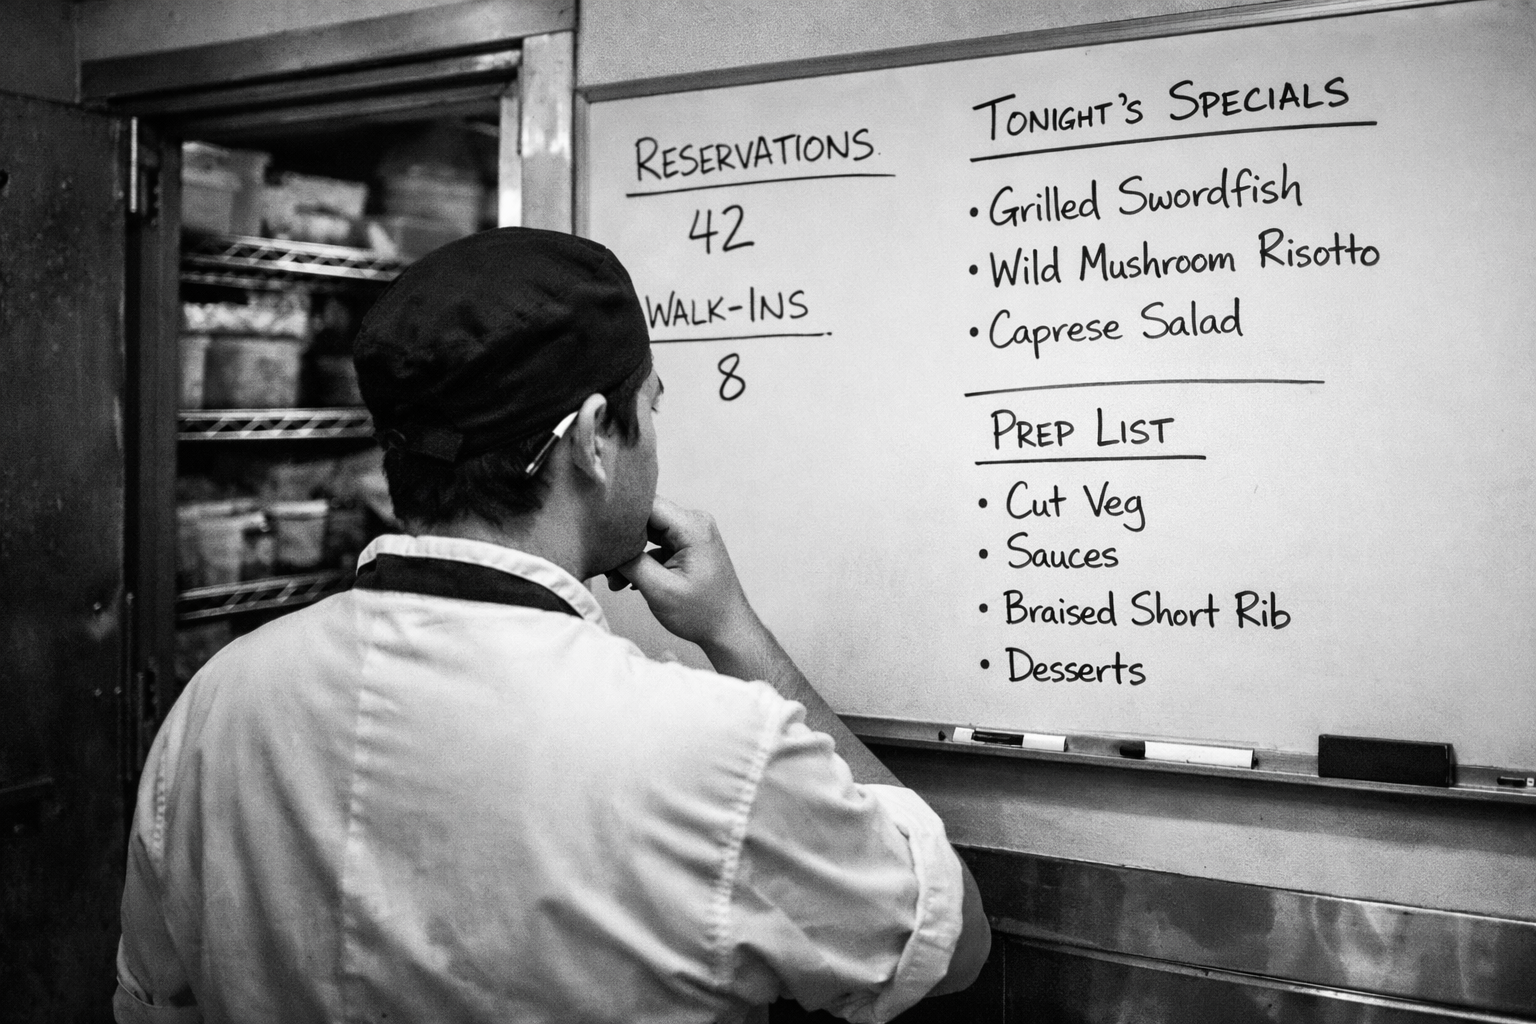 RESERVATIONS
42
WALK-INS
8
TONIGHT'S SPECIALS
• Grilled Swordfish
• Wild Mushroom Risotto
• Caprese Salad
PREP LIST
• Cut Veg
• Sauces
• Braised Short Rib
• Desserts